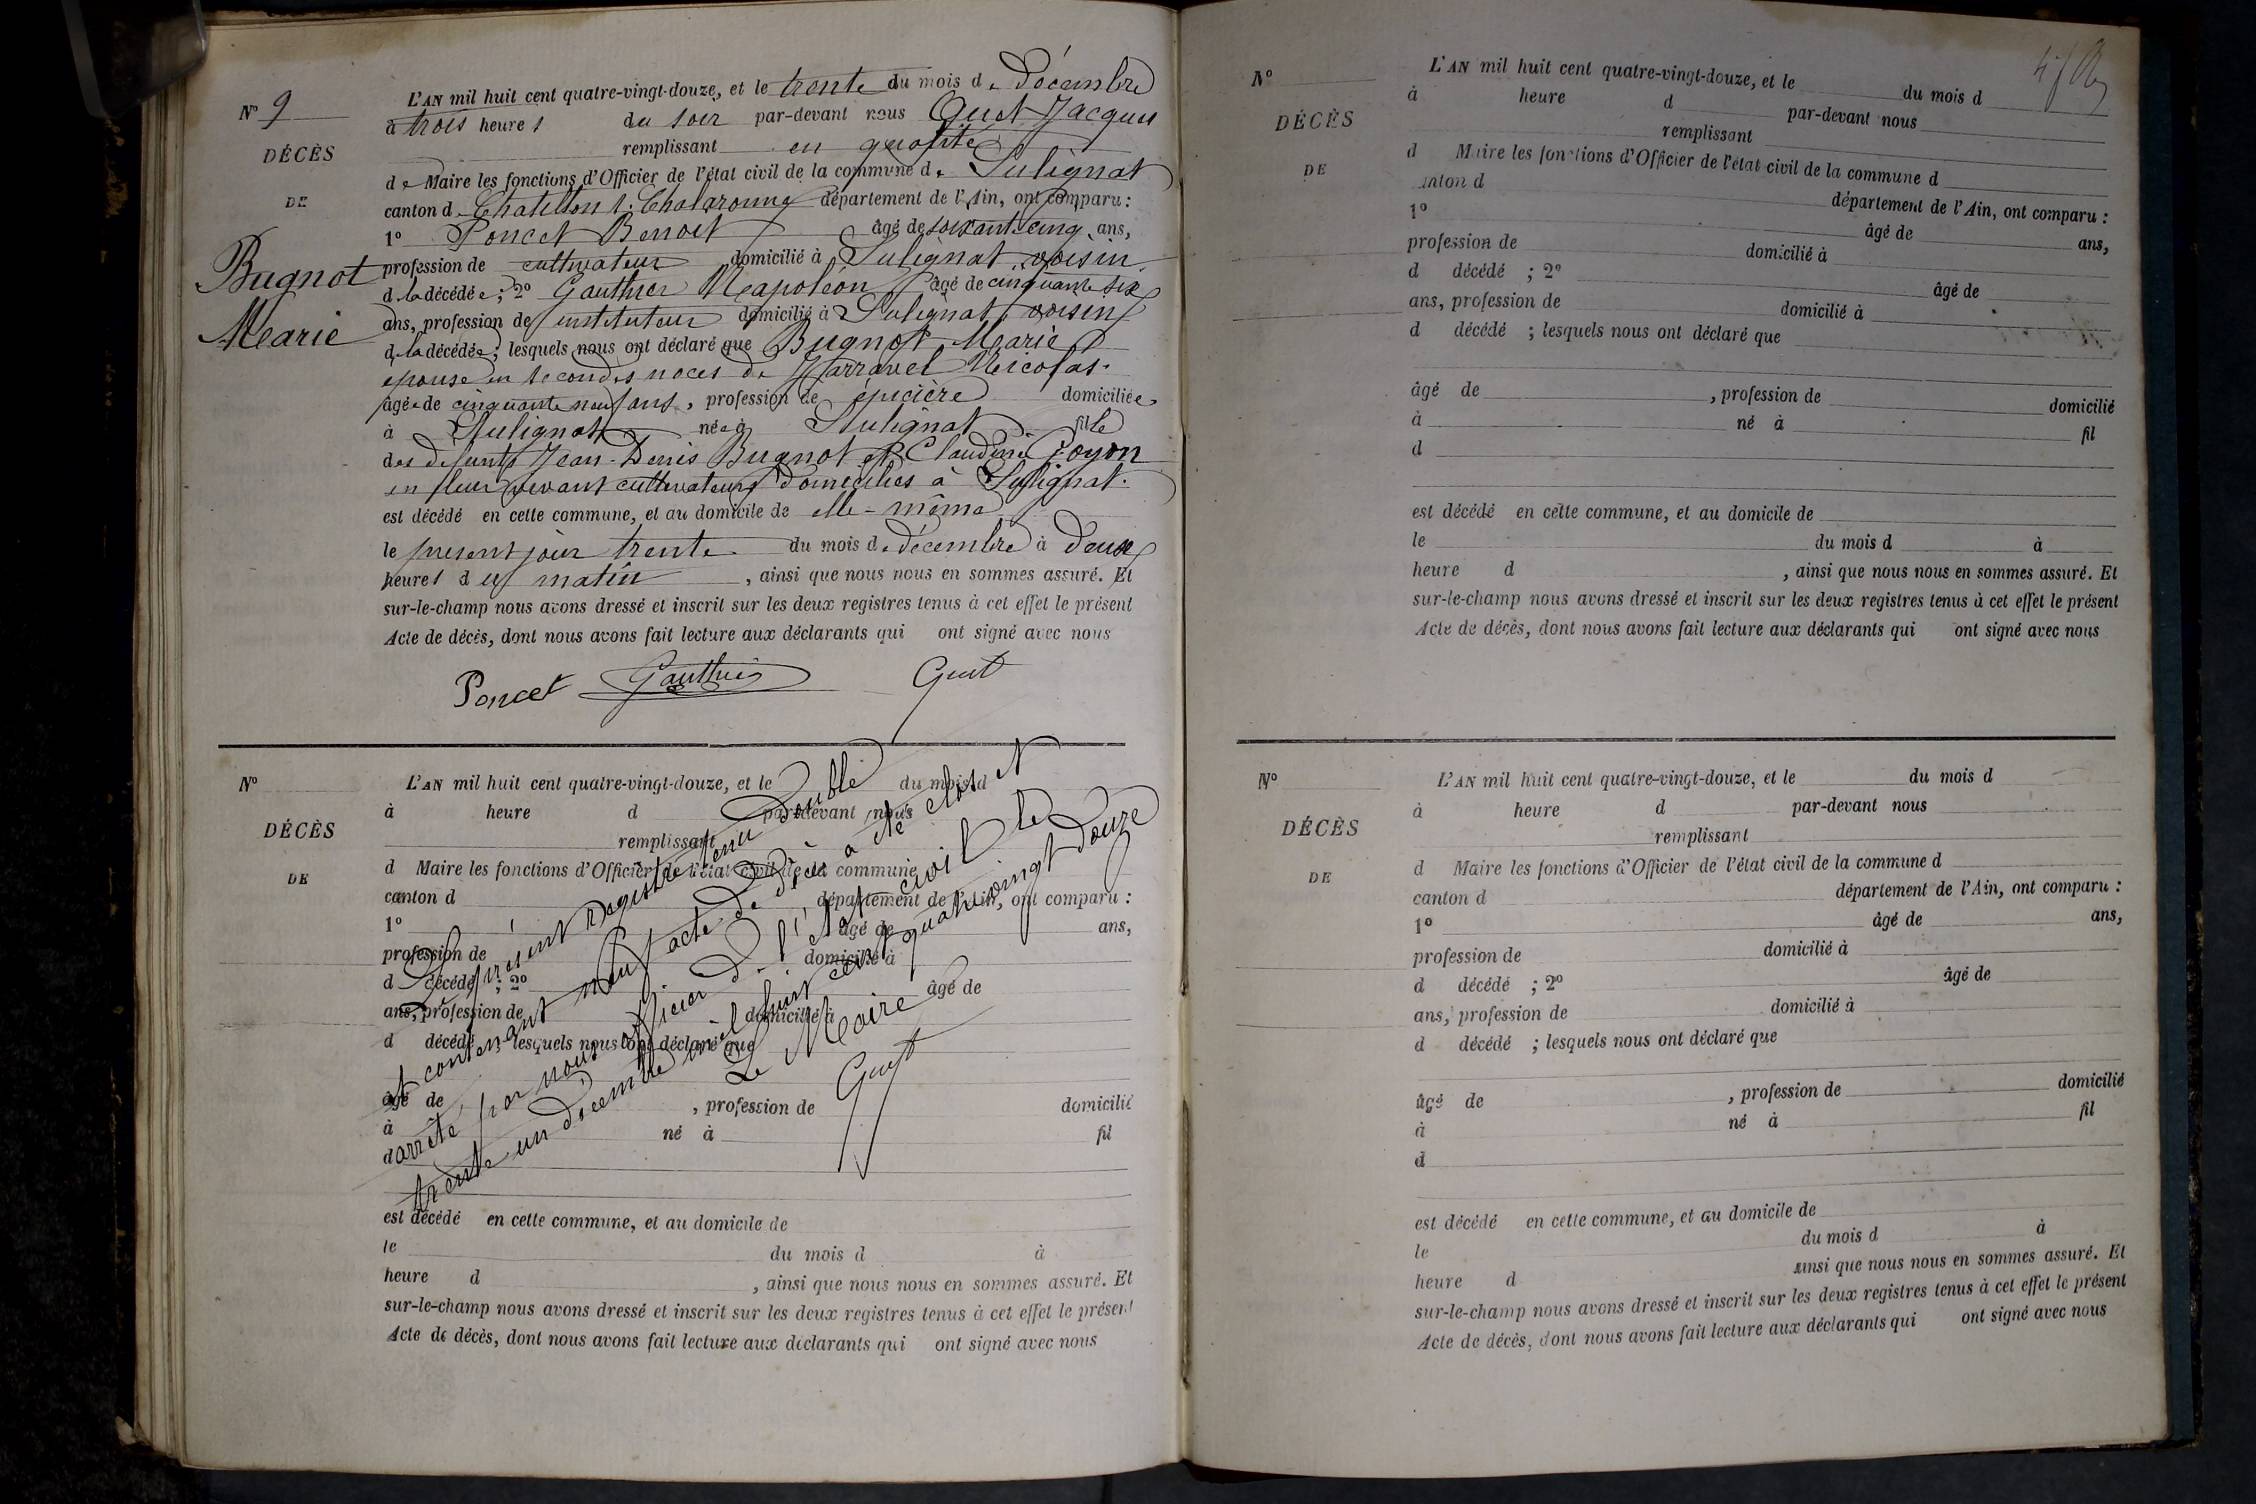 N° 9
DÉCÈS
DE
Bugnot
Marie
L'AN mil huit cent quatre-vingt-douze, et le trente du mois de décembre
à trois heures du soir par-devant nous Quet Jacques
remplissant en qualité
de Maire les fonctions d'Officier de l'état civil de la commune de Sulignat
canton de Chatillon s. Chalaronne département de l'Ain, ont comparu :
1° Poncet Benoit âgé de soixant-cinq ans,
profession de cultivateur domicilié à Sulignat voisin
de la décédée ; 2° Gauthier Napoléon âgé de cinquante six
ans, profession de instituteur domicilié à Sulignat, voisin
de la décédée ; lesquels nous ont déclaré que Bugnot Marie
épouse en secondes noces de Harravel Nicolas.
âgée de cinquante neuf ans, profession de épicière domiciliée
à Sulignat née à Sulignat fille
des defunts Jean-Denis Bugnot et Claudine Goyon
en leur vivant cultivateurs domiciliés à Sulignat.
est décédé en cette commune, et au domicile de elle-même
le présent jour trente du mois de décembre à deux
heures du matin, ainsi que nous nous en sommes assuré. Et
sur-le-champ nous avons dressé et inscrit sur les deux registres tenus à cet effet le présent
Acte de décès, dont nous avons fait lecture aux déclarants qui ont signé avec nous
Poncet Gauthier Quet
N°
DÉCÈS
DE
L'AN mil huit cent quatre-vingt-douze, et le du mois d
à heure d par-devant nous
remplissant
d Maire les fonctions d'Officier de l'état civil de la commune
canton d département de l'Ain, ont comparu :
1° âgé de ans,
profession de domicilié à
d décédé ; 2° âgé de
ans, profession de domicilié à
d décédé ; lesquels nous ont déclaré que
âgé de , profession de domicilié
à né à fil
d
est décédé en cette commune, et au domicile de
le du mois d à
heure d , ainsi que nous nous en sommes assuré. Et
sur-le-champ nous avons dressé et inscrit sur les deux registres tenus à cet effet le présent
Acte de décès, dont nous avons fait lecture aux déclarants qui ont signé avec nous
Le présent registre tenu double
et contenant neuf acte de décès a été clos et
arrêté par nous officier de l'état civil le
trente un décembre mil huit cent quatrevingt douze
Le Maire
Quet
N°
DÉCÈS
DE
L'AN mil huit cent quatre-vingt-douze, et le du mois d
à heure d par-devant nous
remplissant
d Maire les fonctions d'Officier de l'état civil de la commune d
canton d département de l'Ain, ont comparu :
1° âgé de ans,
profession de domicilié à
d décédé ; 2° âgé de
ans, profession de domicilié à
d décédé ; lesquels nous ont déclaré que
âgé de , profession de domicilié
à né à fil
d
est décédé en cette commune, et au domicile de
le du mois d à
heure d , ainsi que nous nous en sommes assuré. Et
sur-le-champ nous avons dressé et inscrit sur les deux registres tenus à cet effet le présent
Acte de décès, dont nous avons fait lecture aux déclarants qui ont signé avec nous
N°
DÉCÈS
DE
L'AN mil huit cent quatre-vingt-douze, et le du mois d
à heure d par-devant nous
remplissant
d Maire les fonctions d'Officier de l'état civil de la commune d
canton d département de l'Ain, ont comparu :
1° âgé de ans,
profession de domicilié à
d décédé ; 2° âgé de
ans, profession de domicilié à
d décédé ; lesquels nous ont déclaré que
âgé de , profession de domicilié
à né à fil
d
est décédé en cette commune, et au domicile de
le du mois d à
heure d ainsi que nous nous en sommes assuré. Et
sur-le-champ nous avons dressé et inscrit sur les deux registres tenus à cet effet le présent
Acte de décès, dont nous avons fait lecture aux déclarants qui ont signé avec nous